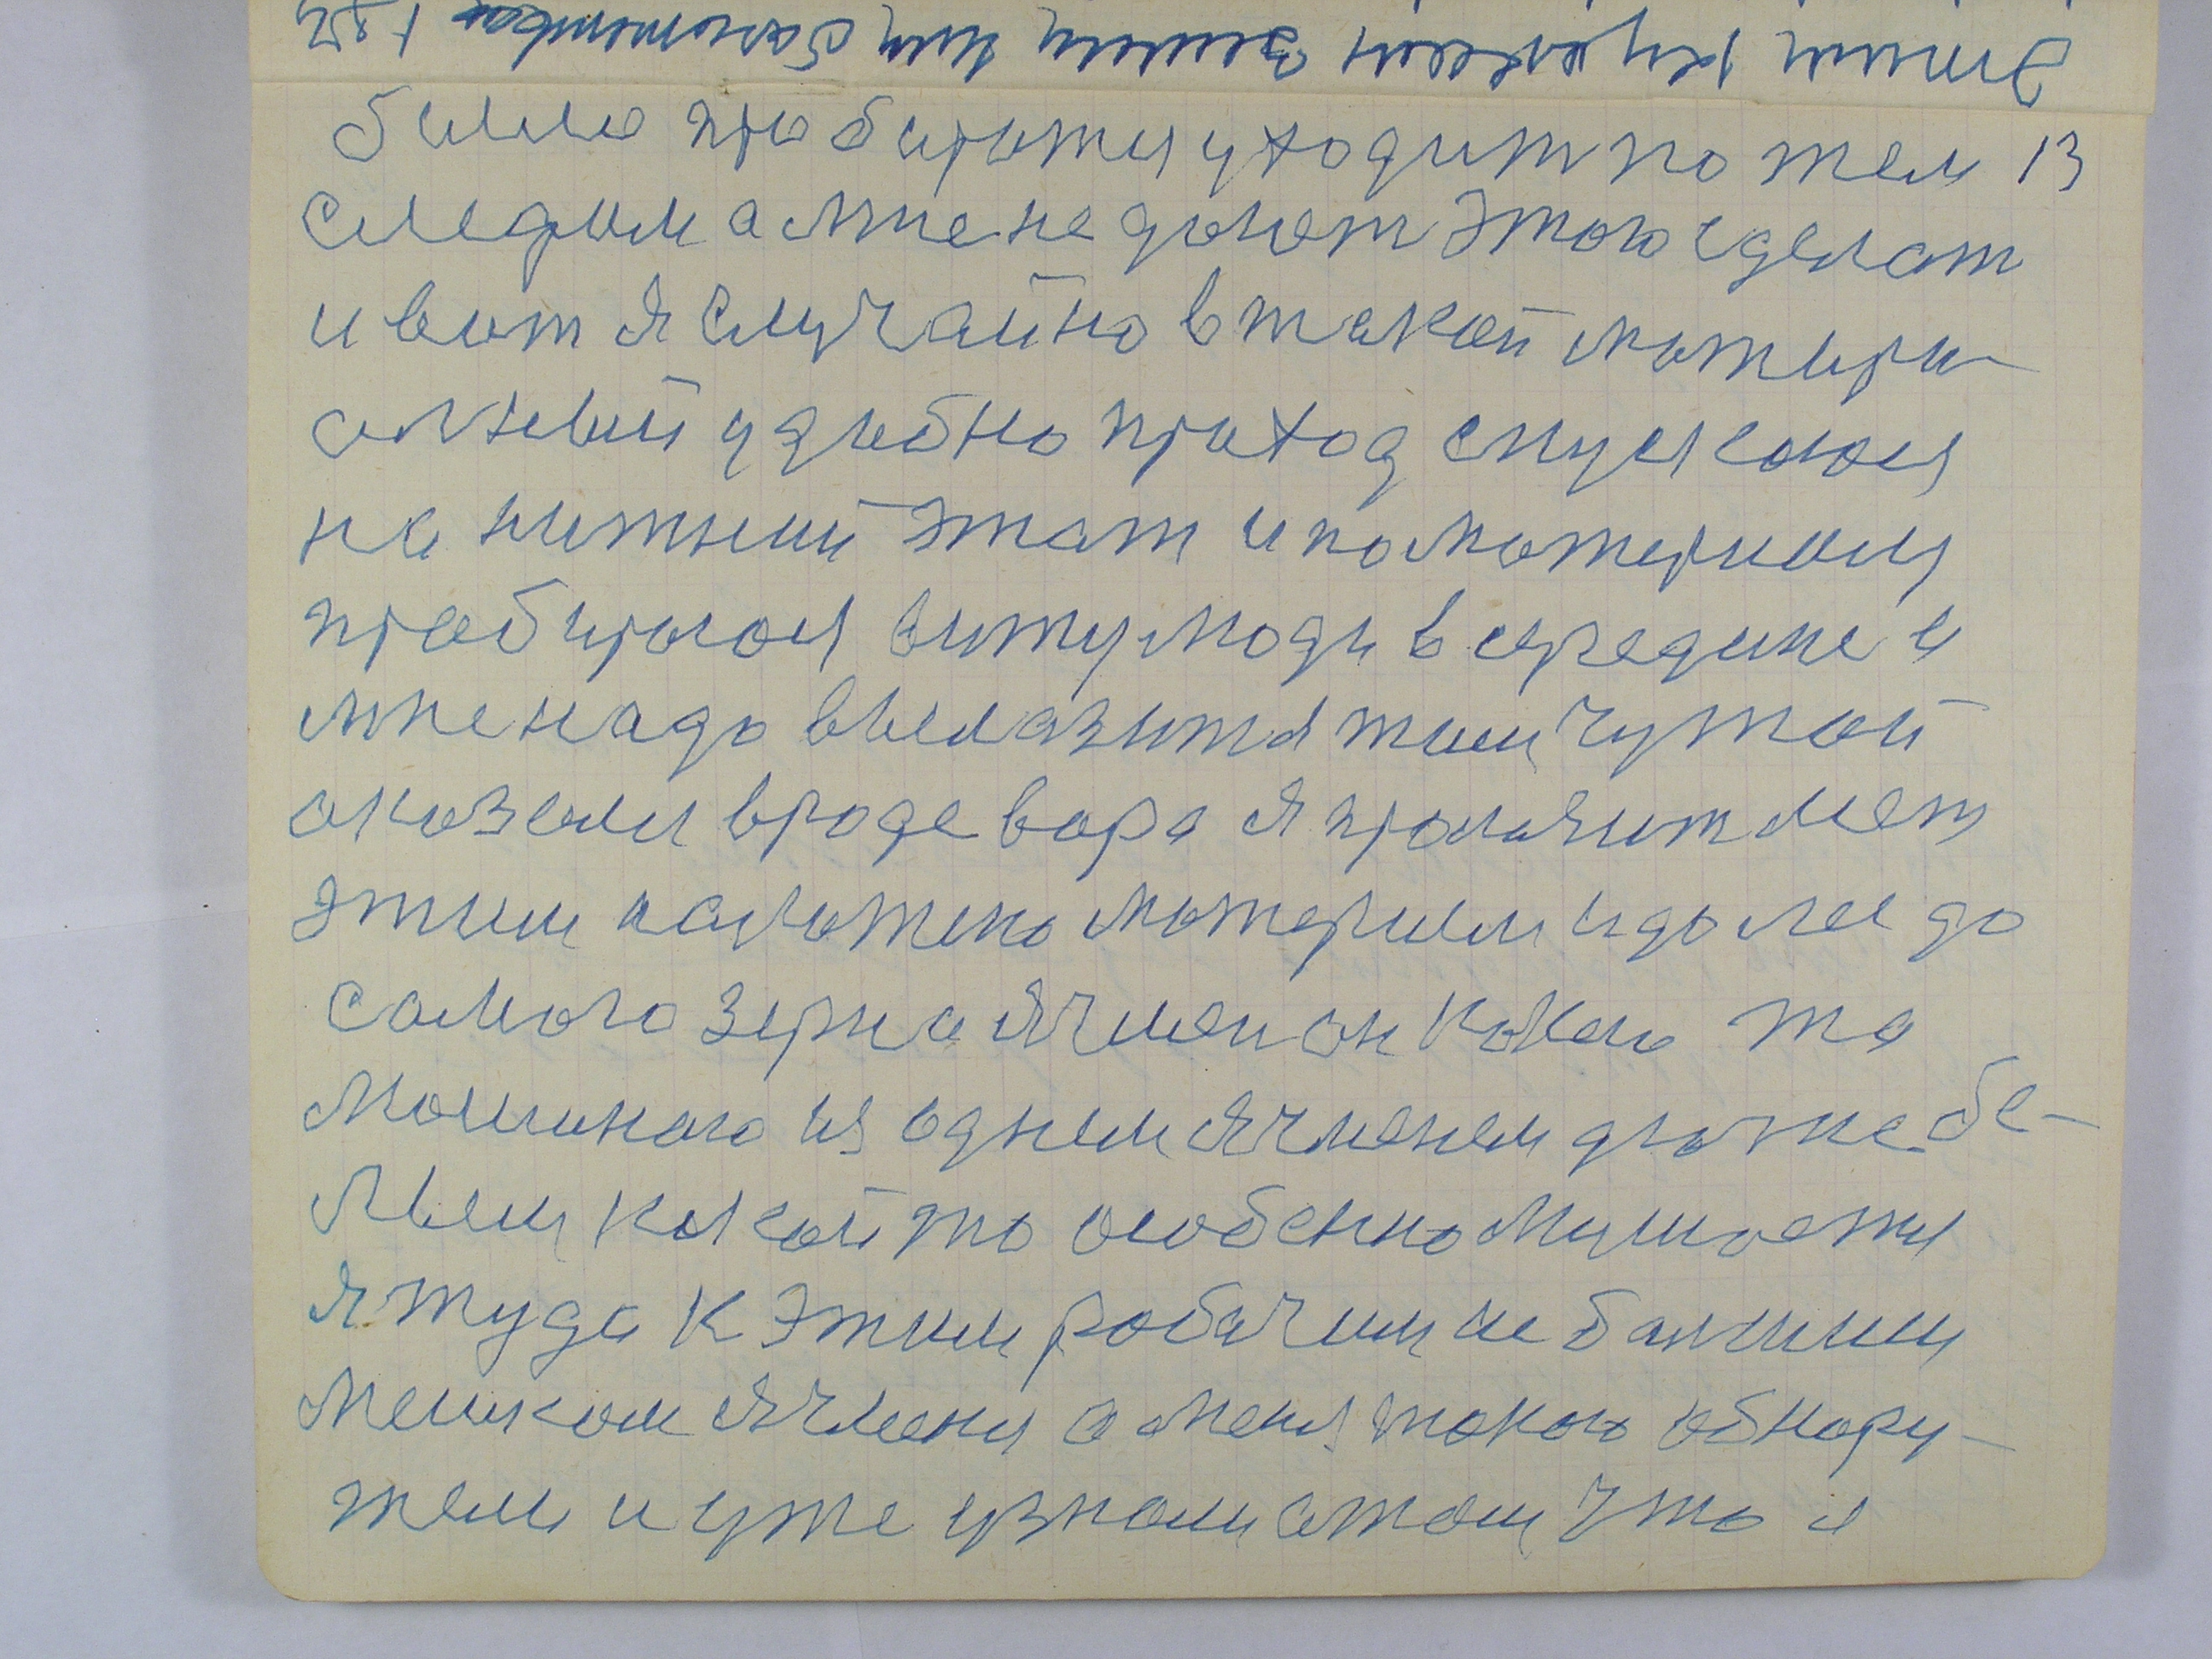 было пробираться уходит по тем 13
следам а мне не дают этого сделат
и вот я случайно в такой матери-
алный удобно проход спускаюя
на нижний этаж и по материалу
пробираюя вижу люди в середине и
мне надо вылазит я там чужой
оказался вроде вора я пролазит лез
этим материал и долез до
самого зерна ячмен он какого та
машиного из одним ячменем даже бе-
лым какой то особенно мушоется
я туда к этим рабочим не болшим
мешком ячменя а меня такого обнару-
жели и уже узнали о том что я